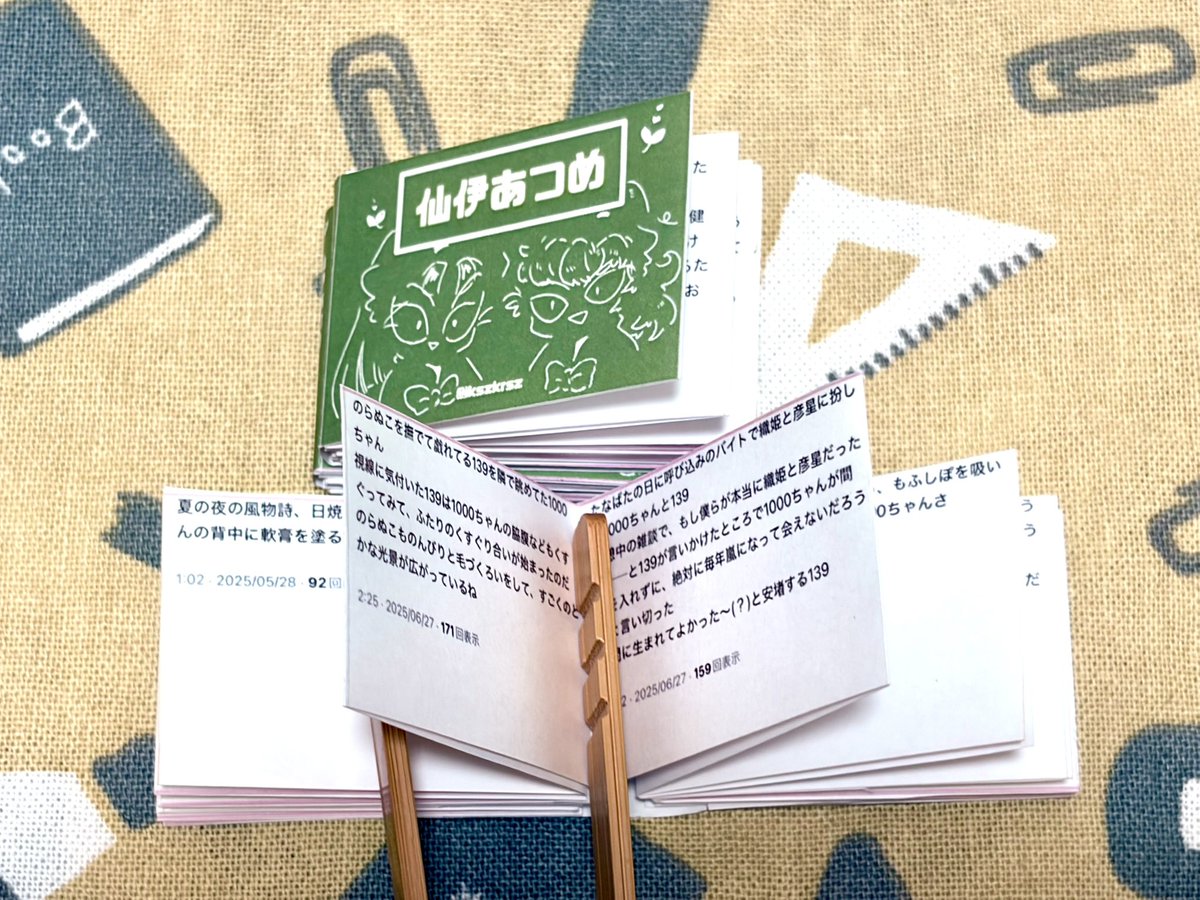 Boo
仙伊あつめ
@kszkrsz
た
健
け
た
お
のらぬこを撫でて戯れてる139を隣で眺めてた1000
ちゃん
視線に気付いた139は1000ちゃんの脇腹などもくす
ぐってみて、ふたりのくすぐり合いが始まったのだ
のらぬこものんびりと毛づくろいをして、すごくのど
かな光景が広がっているね
2:25 · 2025/06/27 · 171回表示
たなばたの日に呼び込みのバイトで織姫と彦星に扮し
1000ちゃんと139
中の雑談で、もし僕らが本当に織姫と彦星だった
——と139が言いかけたところで1000ちゃんが間
を入れずに、絶対に毎年嵐になって会えないだろう
と言い切った
間に生まれてよかった〜(?)と安堵する139
2 · 2025/06/27 · 159回表示
夏の夜の風物詩、日焼
んの背中に軟膏を塗る
1:02 · 2025/05/28 · 92回
、もふしぽを吸い
00ちゃんさ
う
う
だ